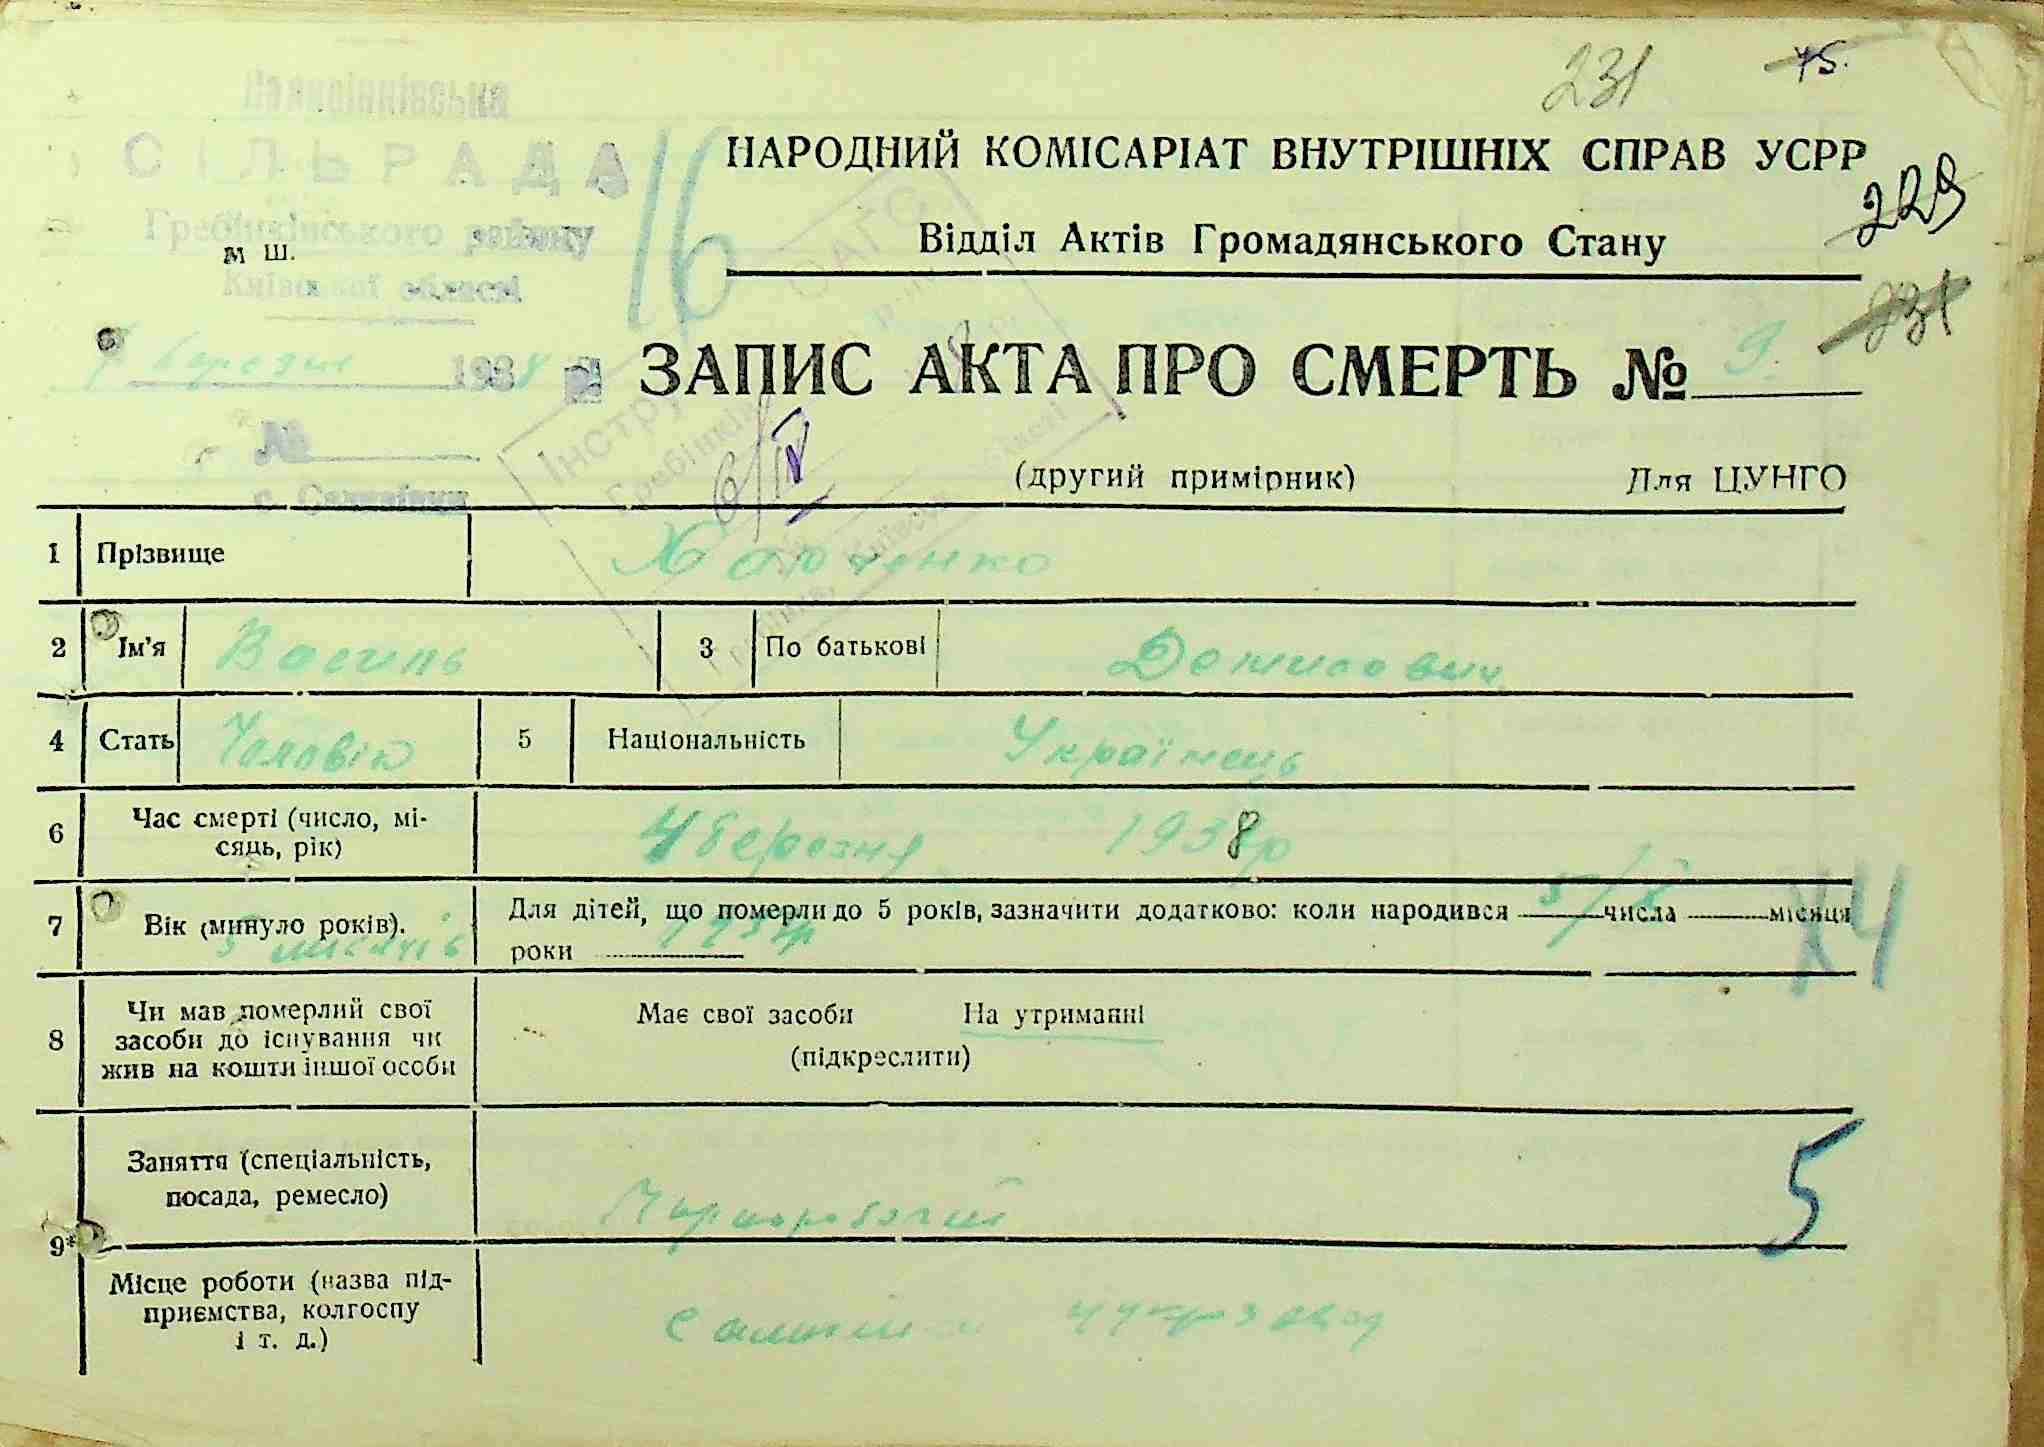 231 75.
СІЛЬРАДА
16
НАРОДНИЙ КОМІСАРІАТ ВНУТРІШНІХ СПРАВ УСРР
Гребінківського району
229
м ш.
Відділ Актів Громадянського Стану
Київської області
231
березня 1938
ЗАПИС АКТА ПРО СМЕРТЬ № 9.
№
6/IV
(другий примірник) Для ЦУНГО
1 Прізвище
2 Ім'я Василь 3 По батькові Денисович
4 Стать Чоловік 5 Національність Українець
6 Час смерті (число, мі-
сяць, рік) 4 березня 1938 р
7 Вік (минуло років). Для дітей, що померли до 5 років, зазначити додатково: коли народився числа місяця
роки
5 місяців
14
8 Чи мав померлий свої
засоби до існування чи
жив на кошти іншої особи
Має свої засоби На утриманні
(підкреслити)
Заняття (спеціальність,
посада, ремесло) Чорноробочий
5
9*
Місце роботи (назва під-
приємства, колгоспу
і т. д.) цукрзавод